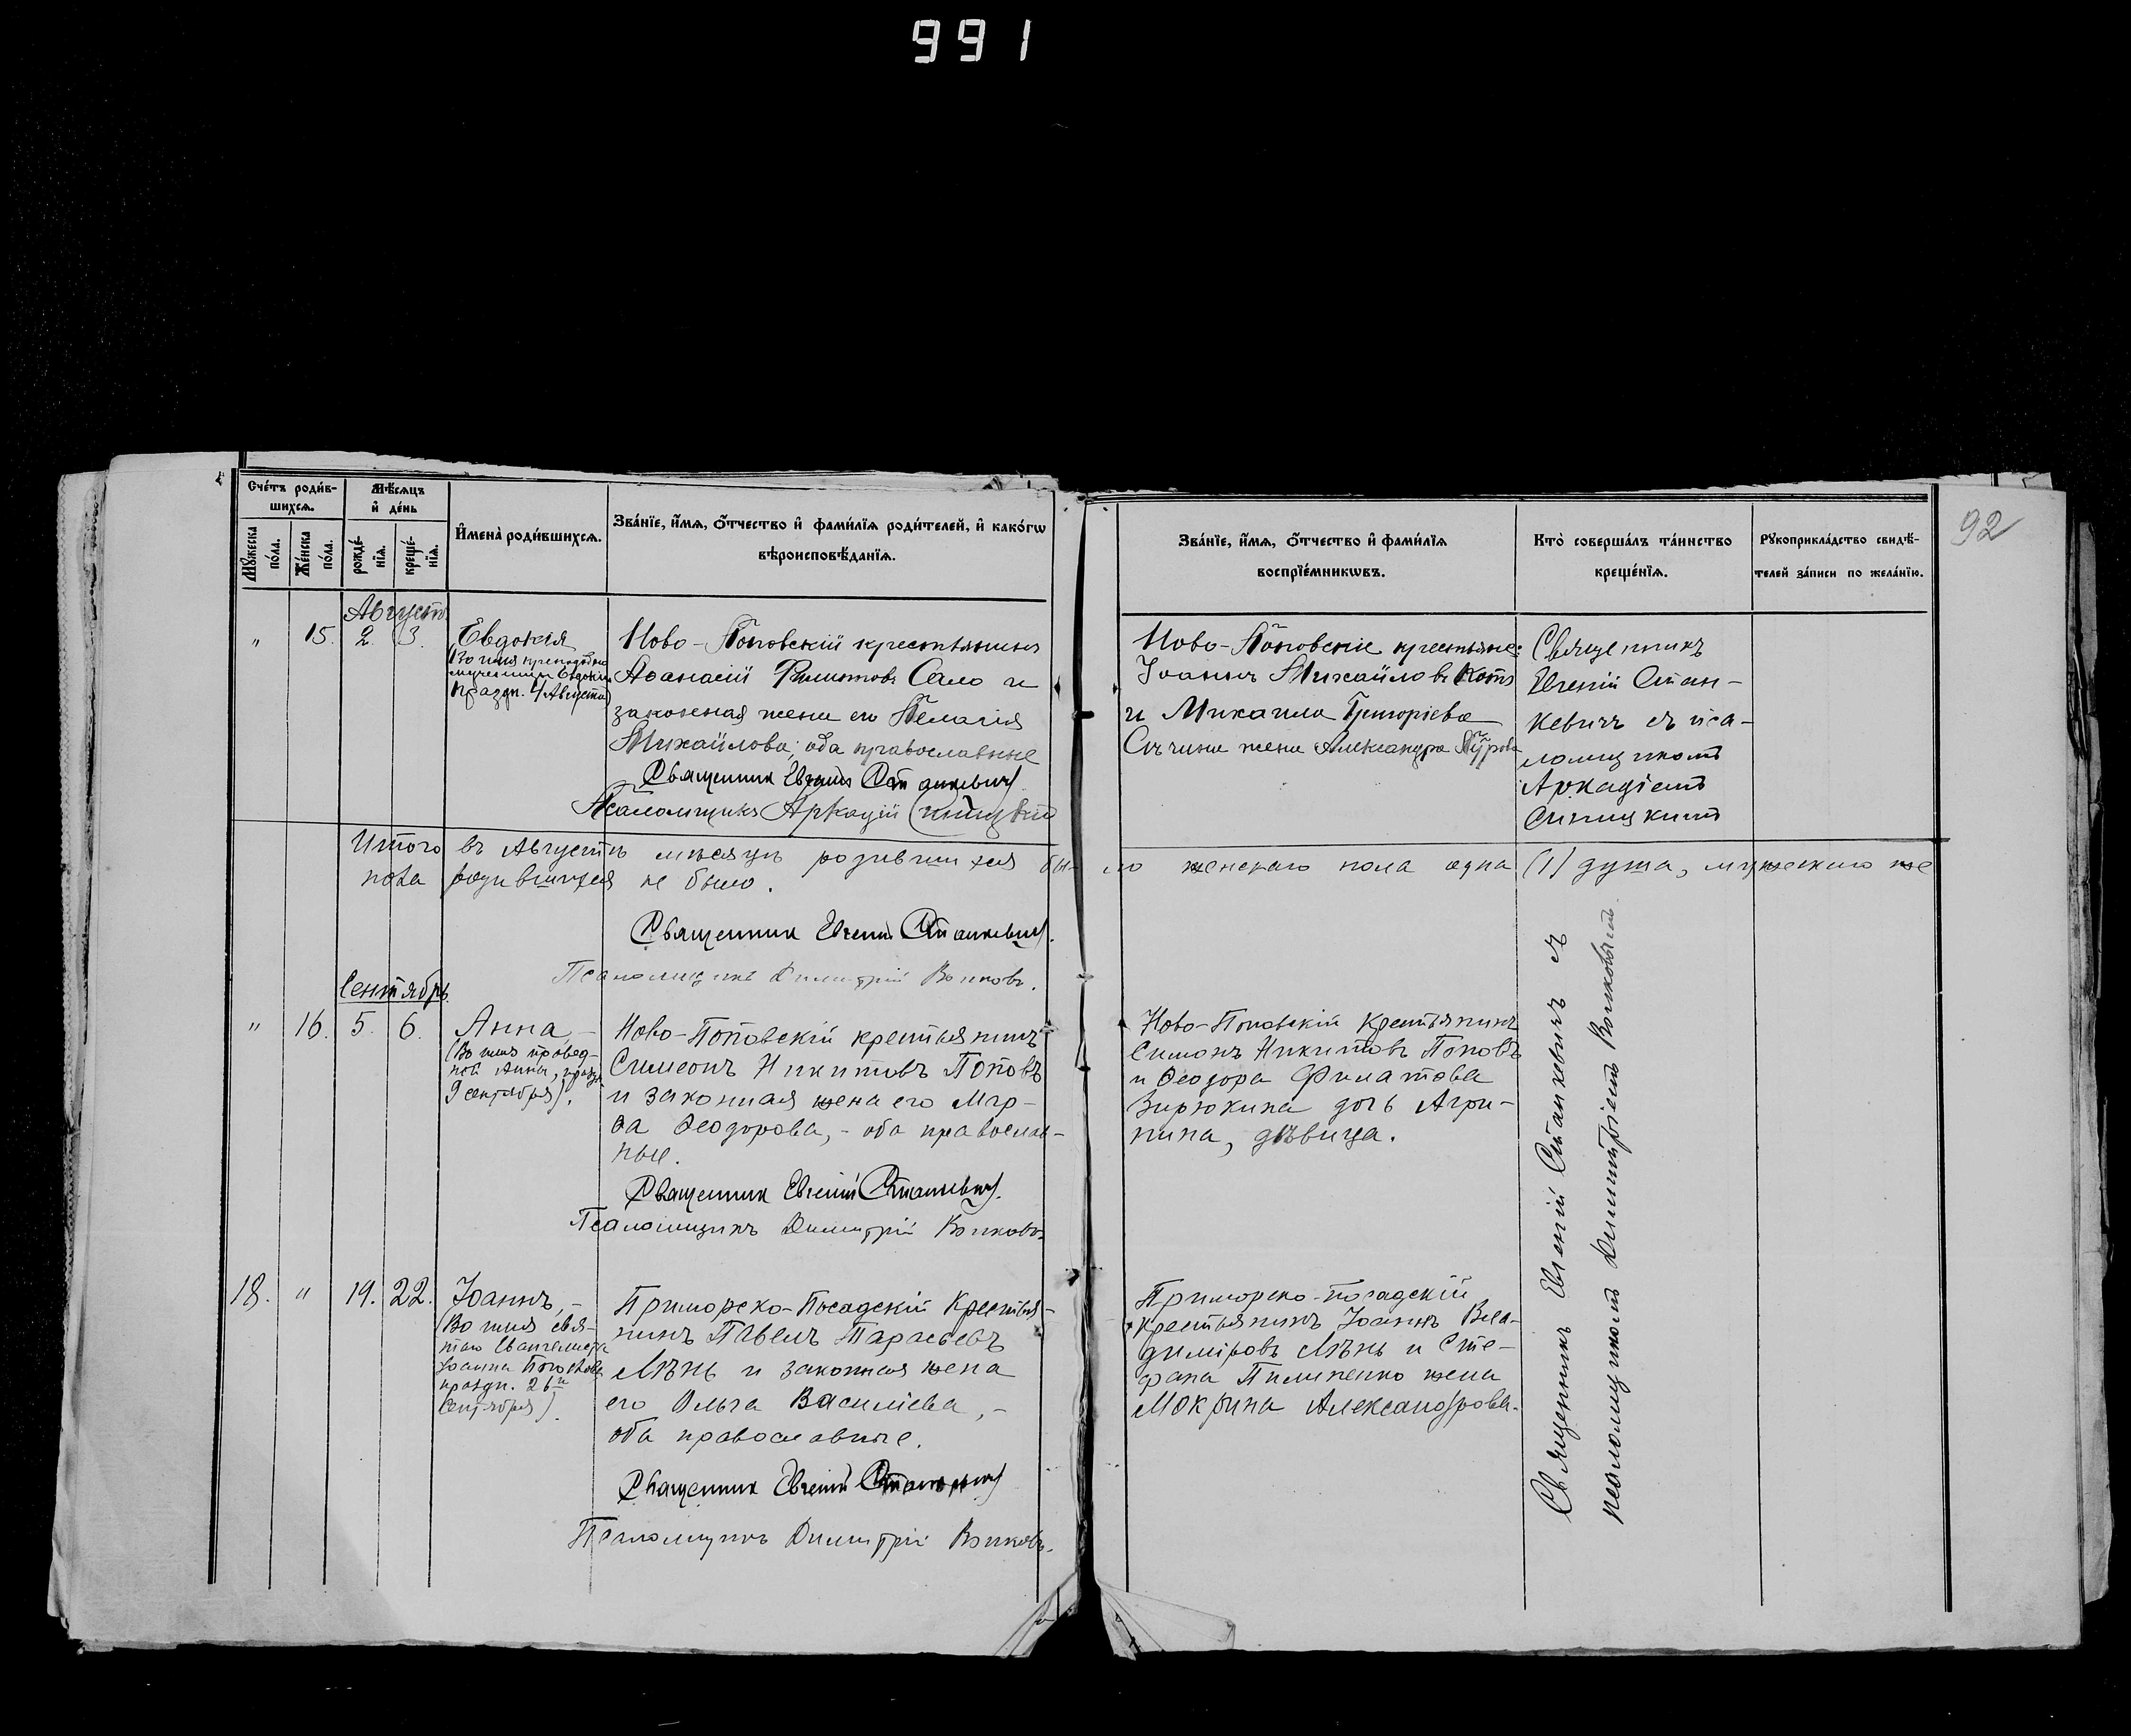 991
92
Счетъ родив-
шихся.
Мужеска пола.
Женска пола.
Мѣсяцъ и день
рожде-нія.
креще-нія.
Имена родившихся.
Званіе, имя, отчество и фамилія родителей, и какогѡ
вѣроисповѣданія.
Званіе, имя, отчество и фамилія
воспріемникѡвъ.
Кто совершалъ таинство
крещенія.
Рукоприкладство свидѣ-
телей записи по желанію.
Августъ
" 15. 2. 3.
Евдокія
(Во имя преподобно
мученицы Евдокіи
праздн. 4 Августа)
Ново-Поповскій крестьянинъ
Аѳанасій Филиповъ Сало и
законная жена его Пелагія
Михайлова, оба православные
Священникъ Евгеній Станкевичъ.
Псаломщикъ Аркадій Синицкій
Ново-Поповскіе крестьяне:
Іоаннъ Михайловъ Котъ
и Михаила Григоріева
жена Александра
Священникъ
Евгеній Стан-
кевичъ съ пса-
ломщикомъ
Аркадіемъ
Синицкимъ
Итого въ Августѣ мѣсяцѣ родившихся бы-ло женскаго пола одна (1) душа, мужескаго же
пола родившихся не было.
Священникъ Евгеній Станкевичъ.
Псаломщикъ Димитрій Волковъ.
Сентябрь.
" 16. 5. 6.
Анна,-
(Во имя правед-
ной Анны, празд.
9 сентября).
Ново-Поповскій крестьянинъ
Симеонъ Никитовъ Поповъ
и законная жена его Мар-
ѳа Ѳеодорова,- оба православ-
ные.
Священникъ Евгеній Станкевичъ.
Псаломщикъ Димитрій Волковъ.
Ново-Поповскій крестьянинъ
Симонъ Никитовъ Поповъ
и Ѳеодора Филатова
Зирюкина дочь Агри-
пина, дѣвица.
18. " 19. 22.
Іоаннъ,-
(Во имя свя-
таго Евангелиста
Іоанна Богослова
праздн. 26го
Сентября).
Приморско-Посадскій крестья-
нинъ Павелъ Тарасьевъ
Лѣнь и законная жена
его Ольга Василіева,-
оба православные.
Священникъ Евгеній Станкевичъ
Псаломщикъ Димитрій Волковъ.
Приморско-посадскій
крестьянинъ Іоаннъ Вла-
диміровъ Лѣнь и Сте-
фана Пилипенко жена
Мокрина Александрова.
Священникъ Евгеній Станкевичъ съ
псаломщикомъ Димитріемъ Волковымъ.